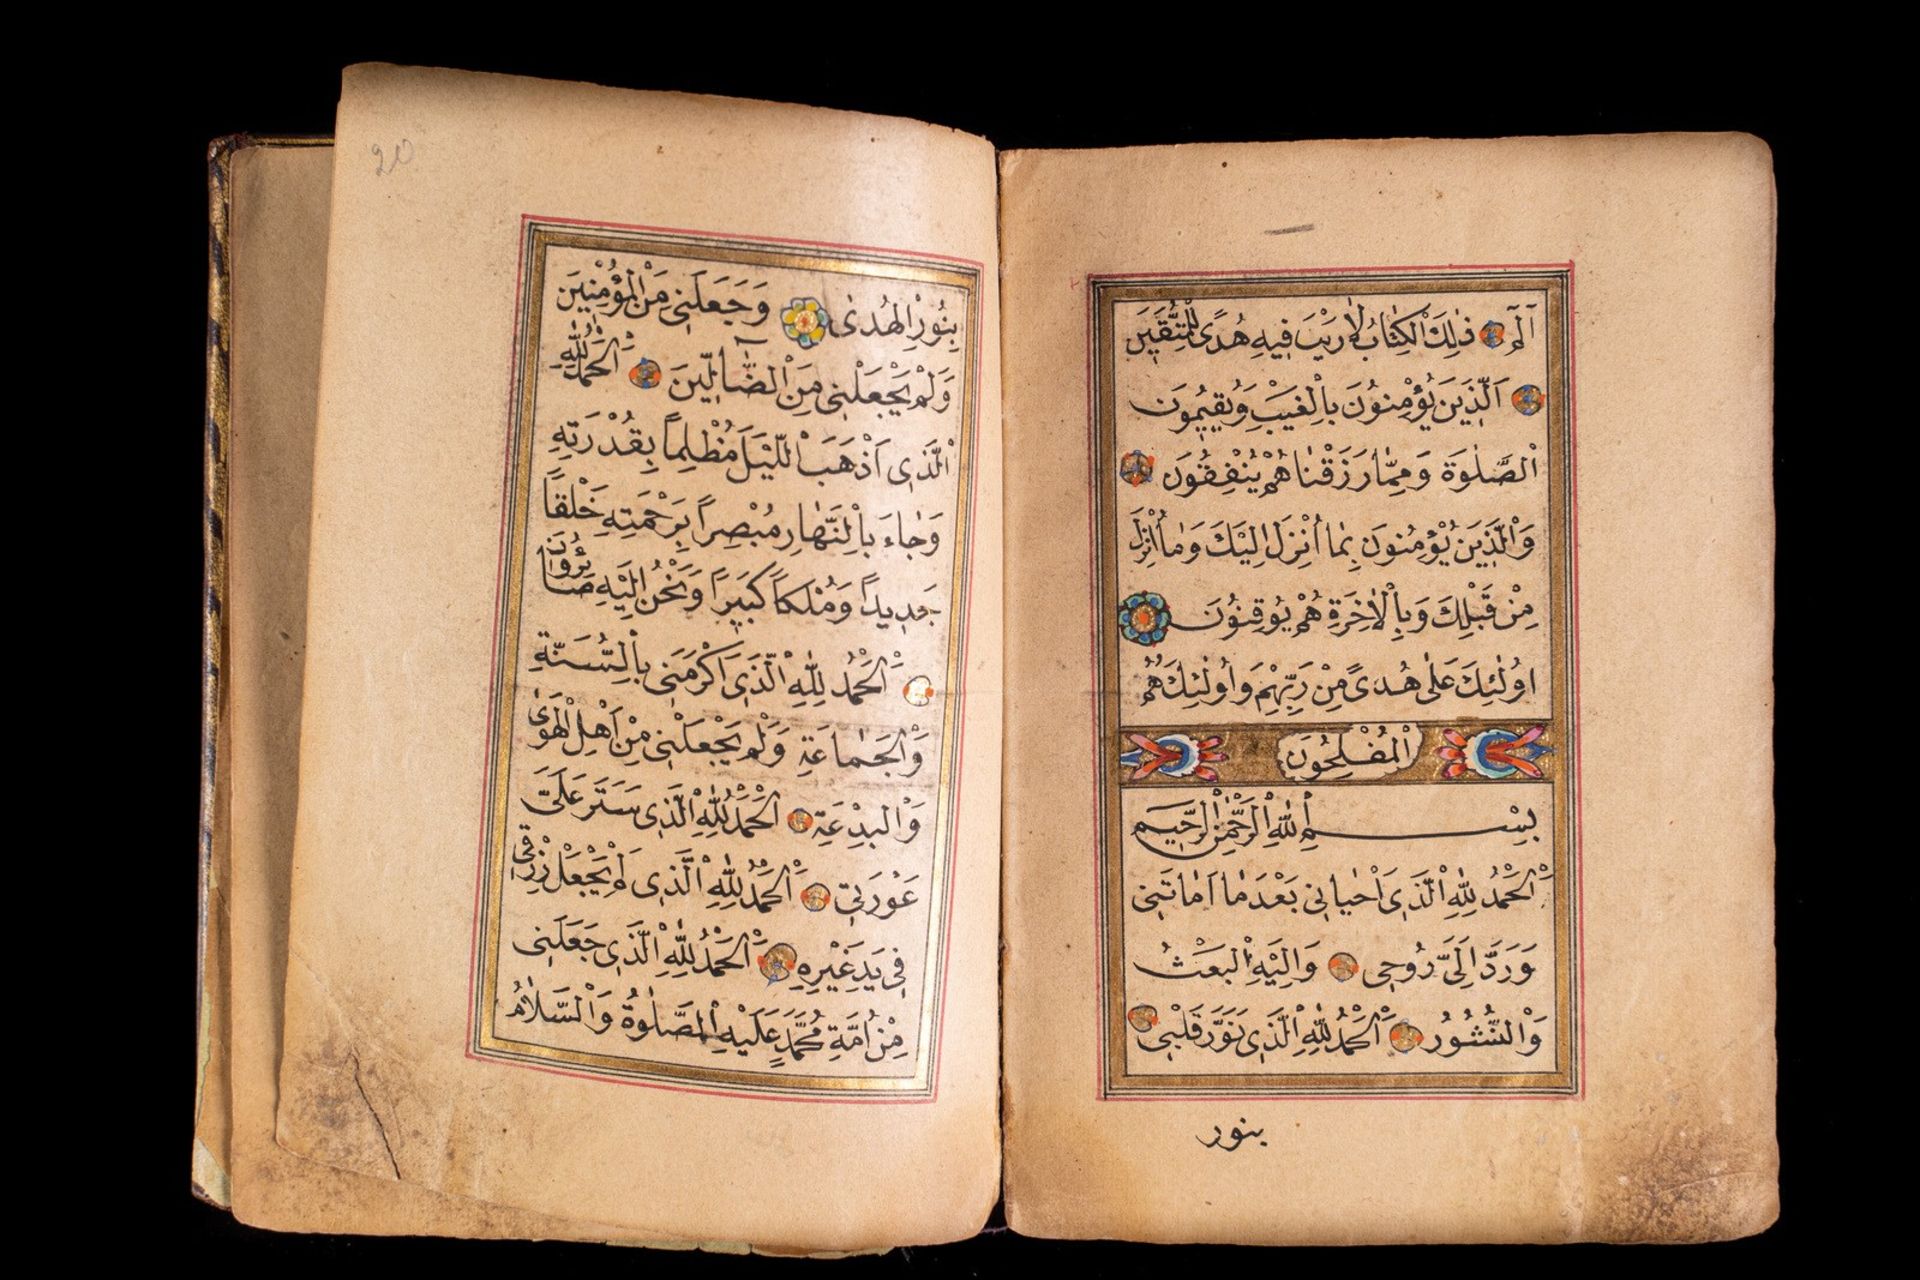 الٓمٓ ذٰلِكَ الْكِتٰابُ لٰا رَيْبَ فِيهِ هُدًى لِلْمُتَّقِينَ
اَلَّذِينَ يُؤْمِنُونَ بِالْغَيْبِ وَيُقِيمُونَ
الْصَّلٰوةَ وَمِمّٰا رَزَقْنٰا هُمْ يُنْفِقُونَ
وَالَّذِينَ يُؤْمِنُونَ بِمٰا اُنْزِلَ اِلَيْكَ وَمٰا اُنْزِلَ
مِنْ قَبْلِكَ وَبِالْاٰخِرَةِ هُمْ يُوقِنُونَ
اُولٰئِكَ عَلٰى هُدًى مِنْ رَبِّهِمْ وَاُولٰئِكَ هُمُ
الْمُفْلِحُونَ
بِسْمِ اللّٰهِ الرَّحْمٰنِ الرَّحِيمِ
اَلْحَمْدُ لِلّٰهِ الَّذِى اَحْيٰانِى بَعْدَ مٰا اَمٰاتَنِى
وَرَدَّ اِلَىَّ رُوحِى وَاِلَيْهِ الْبَعْثُ
وَالْنُّشُورُ اَلْحَمْدُ لِلّٰهِ الَّذِى نَوَّرَ قَلْبِى
بنور
20
بِنُورِ الْهُدٰى وَجَعَلَنِى مِنَ الْمُؤْمِنِينَ
وَلَمْ يَجْعَلْنِى مِنَ الْضّٰٓالِّينَ اَلْحَمْدُ لِلّٰهِ
الَّذِى اَذْهَبَ الْلَّيْلَ مُظْلِماً بِقُدْرَتِهِ
وَجٰاءَ بِالْنَّهٰارِ مُبْصِراً بِرَحْمَتِهِ خَلْقاً
جَدِيداً وَمُلْكاً كَبِيراً وَنَحْنُ اِلَيْهِ صٰائِرُونَ
اَلْحَمْدُ لِلّٰهِ الَّذِى اَكْرَمَنِى بِالْسُّنَّةِ
وَالْجَمٰاعَةِ وَلَمْ يَجْعَلْنِى مِنْ اَهْلِ الْهَوٰى
وَالْبِدْعَةِ اَلْحَمْدُ لِلّٰهِ الَّذِى سَتَرَ عَلَىَّ
عَوْرَتِى اَلْحَمْدُ لِلّٰهِ الَّذِى لَمْ يَجْعَلْ رِزْقِى
فِى يَدِ غَيْرِهِ اَلْحَمْدُ لِلّٰهِ الَّذِى جَعَلَنِى
مِنْ اُمَّةِ مُحَمَّدٍ عَلَيْهِ الْصَّلٰوةُ وَالْسَّلٰامُ